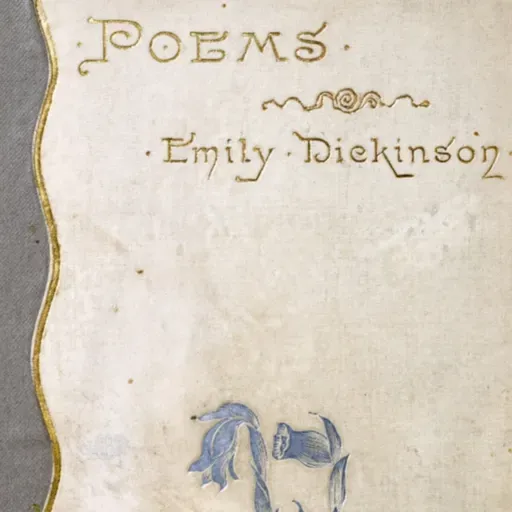 POEMS·
·Emily·Dickinson·